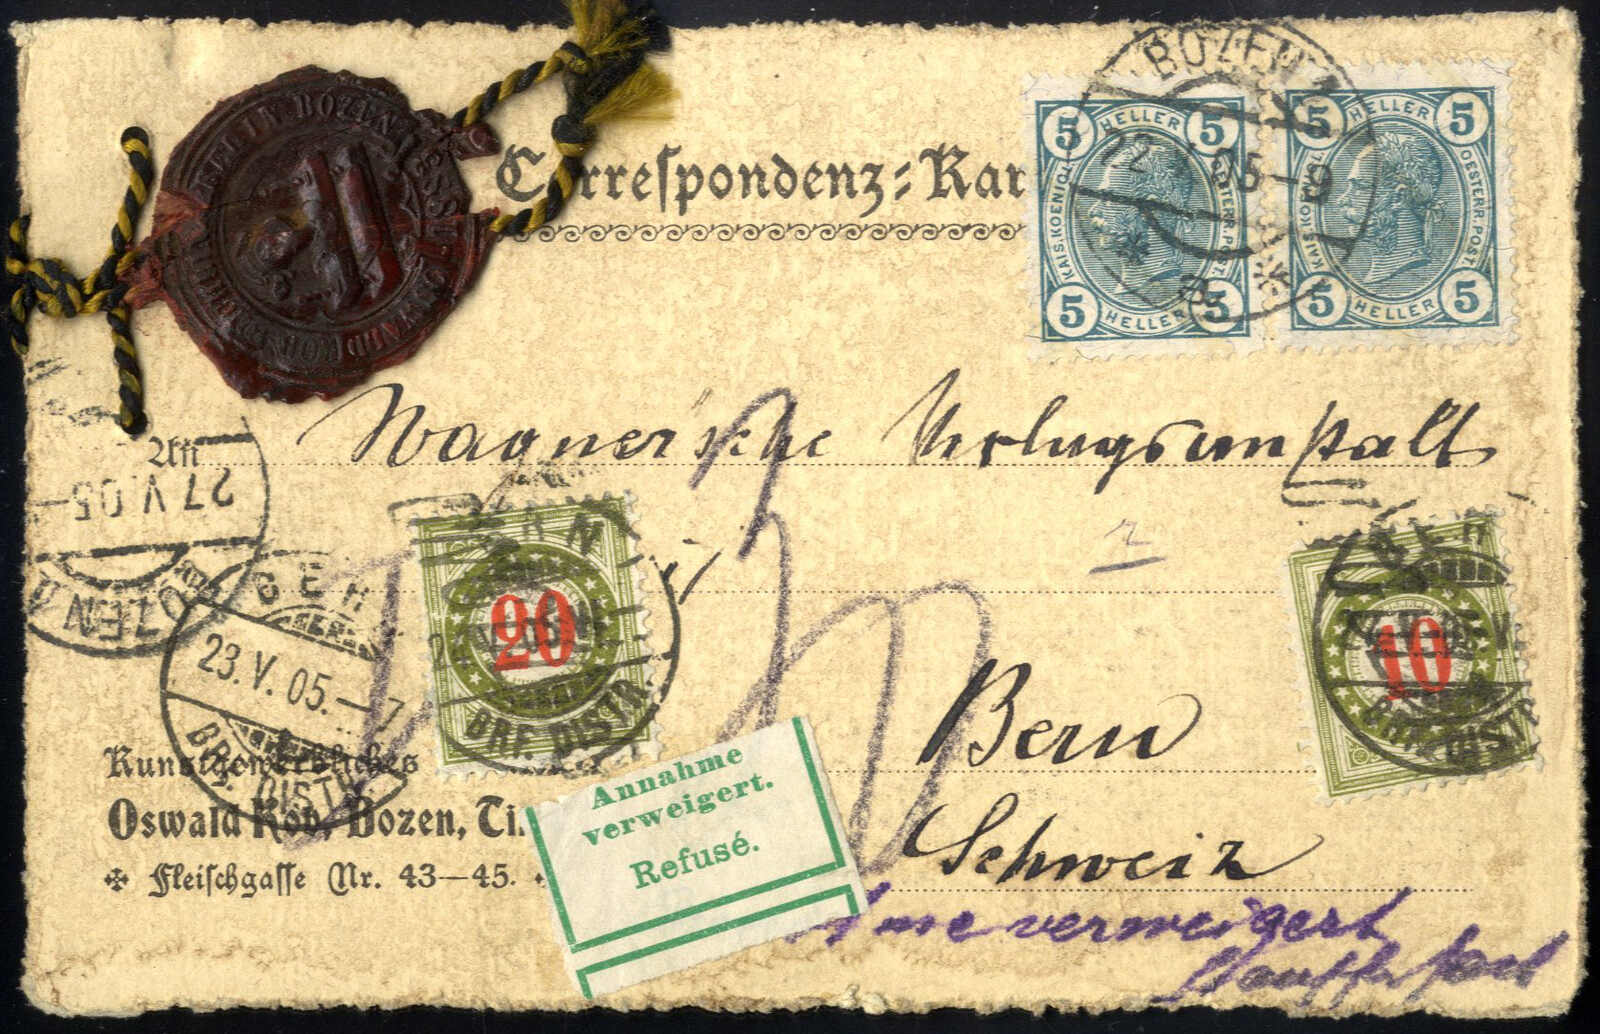 BOZEN
Correspondenz-Kar
5 HELLER 5
KAIS. KOENIGL. OESTERR. POST.
5 HELLER 5
5 HELLER 5
KAIS. KOENIGL. OESTERR. POST.
5 HELLER 5
22 05-9
An
Wagner'sche Verlagsanstalt
27 V 05
BOZEN
BERN
23.V.05.-7
BRF. DISTR.
BERN
20
BRF. DISTR.
10
Bern
Schweiz
Kunstgewerbliches
Oswald Kob, Bozen, Ti
Fleischgasse Nr. 43-45.
Annahme
verweigert.
Refusé.
verweigert